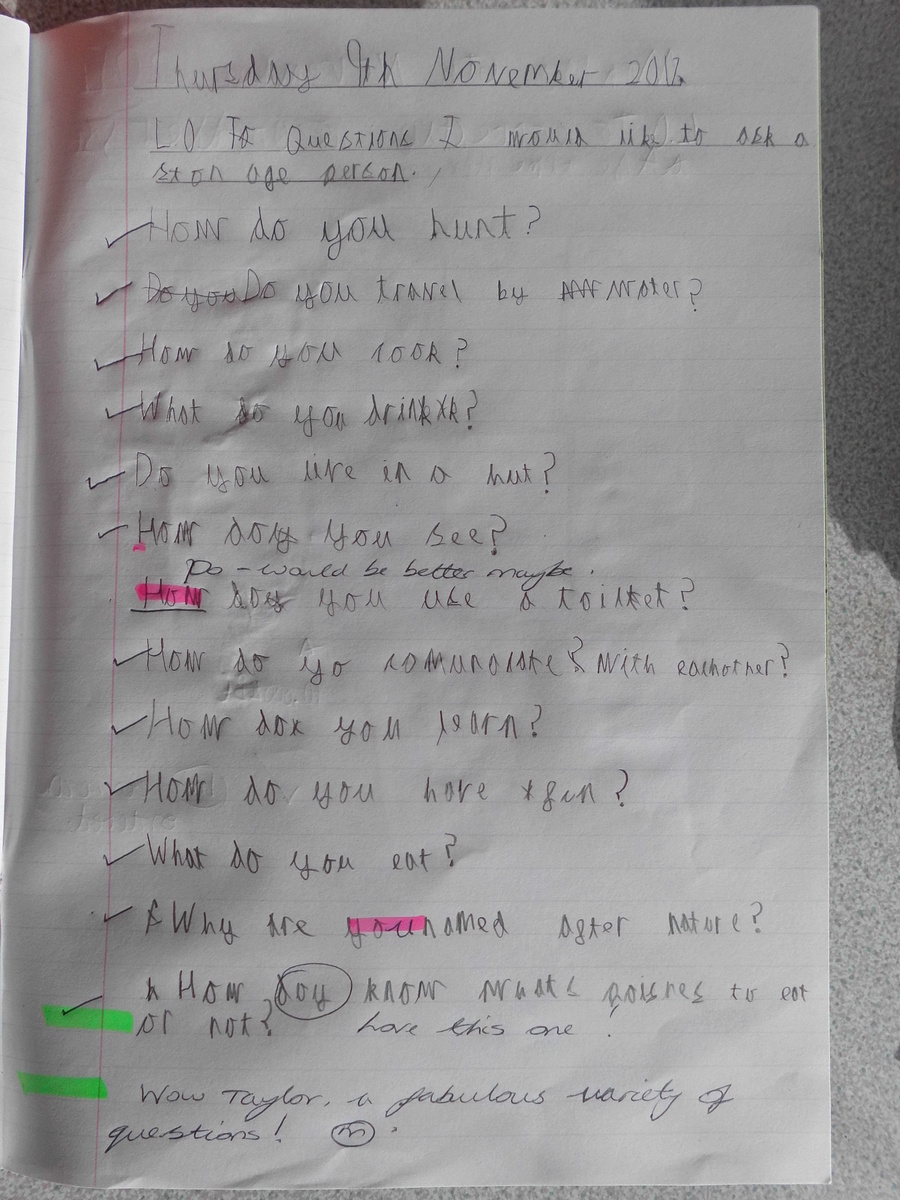 Thursday 9th November 2017
LO To Questions I would like to ask a
ston age person.
How do you hunt?
Do you Do you travel by water?
How do you cook?
What do you drink?
Do you live in a hut?
How do you see?
Do - would be better maybe.
How do you use a toilket?
How do yo comunciate? with eachother?
How do you learn?
How do you have fun?
What do you eat?
Why are you named after nature?
How doy know whats to eat
or not? love this one!
Wow Taylor, a fabulous variety of
questions!